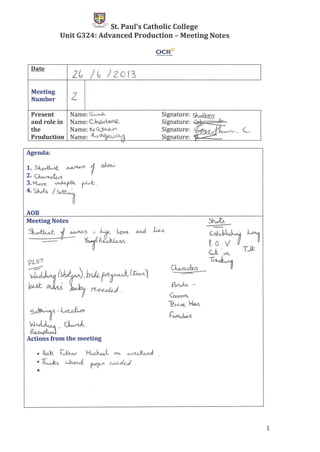 St. Paul's Catholic College
Unit G324: Advanced Production – Meeting Notes
OCR
Date
26 / 6 / 2013
Meeting Number
2
Present and role in the Production
Name: Sarah
Name: Charlotte
Name:
Name: Ridgeway
Signature:
Signature:
Signature:
Signature:
Agenda:
1. Shortlist names of show
2. Characters
3. More indepth plot.
4. Shots / Setting
AOB
Meeting Notes
Shortlist of names : hope love and lies
Young & Reckless
PLOT
Wedding, bride pregnant (Teen)
best mans baby revealed.
Settings - Location
Wedding, Church
Reception
Shots
Establishing long
P.O.V
Tilt
Cut in
Tracking
Characters
Bride -
Groom
Best Man
Families
Actions from the meeting
• Ask Father Michael on weekend.
• Thinks about props needed.
•
1